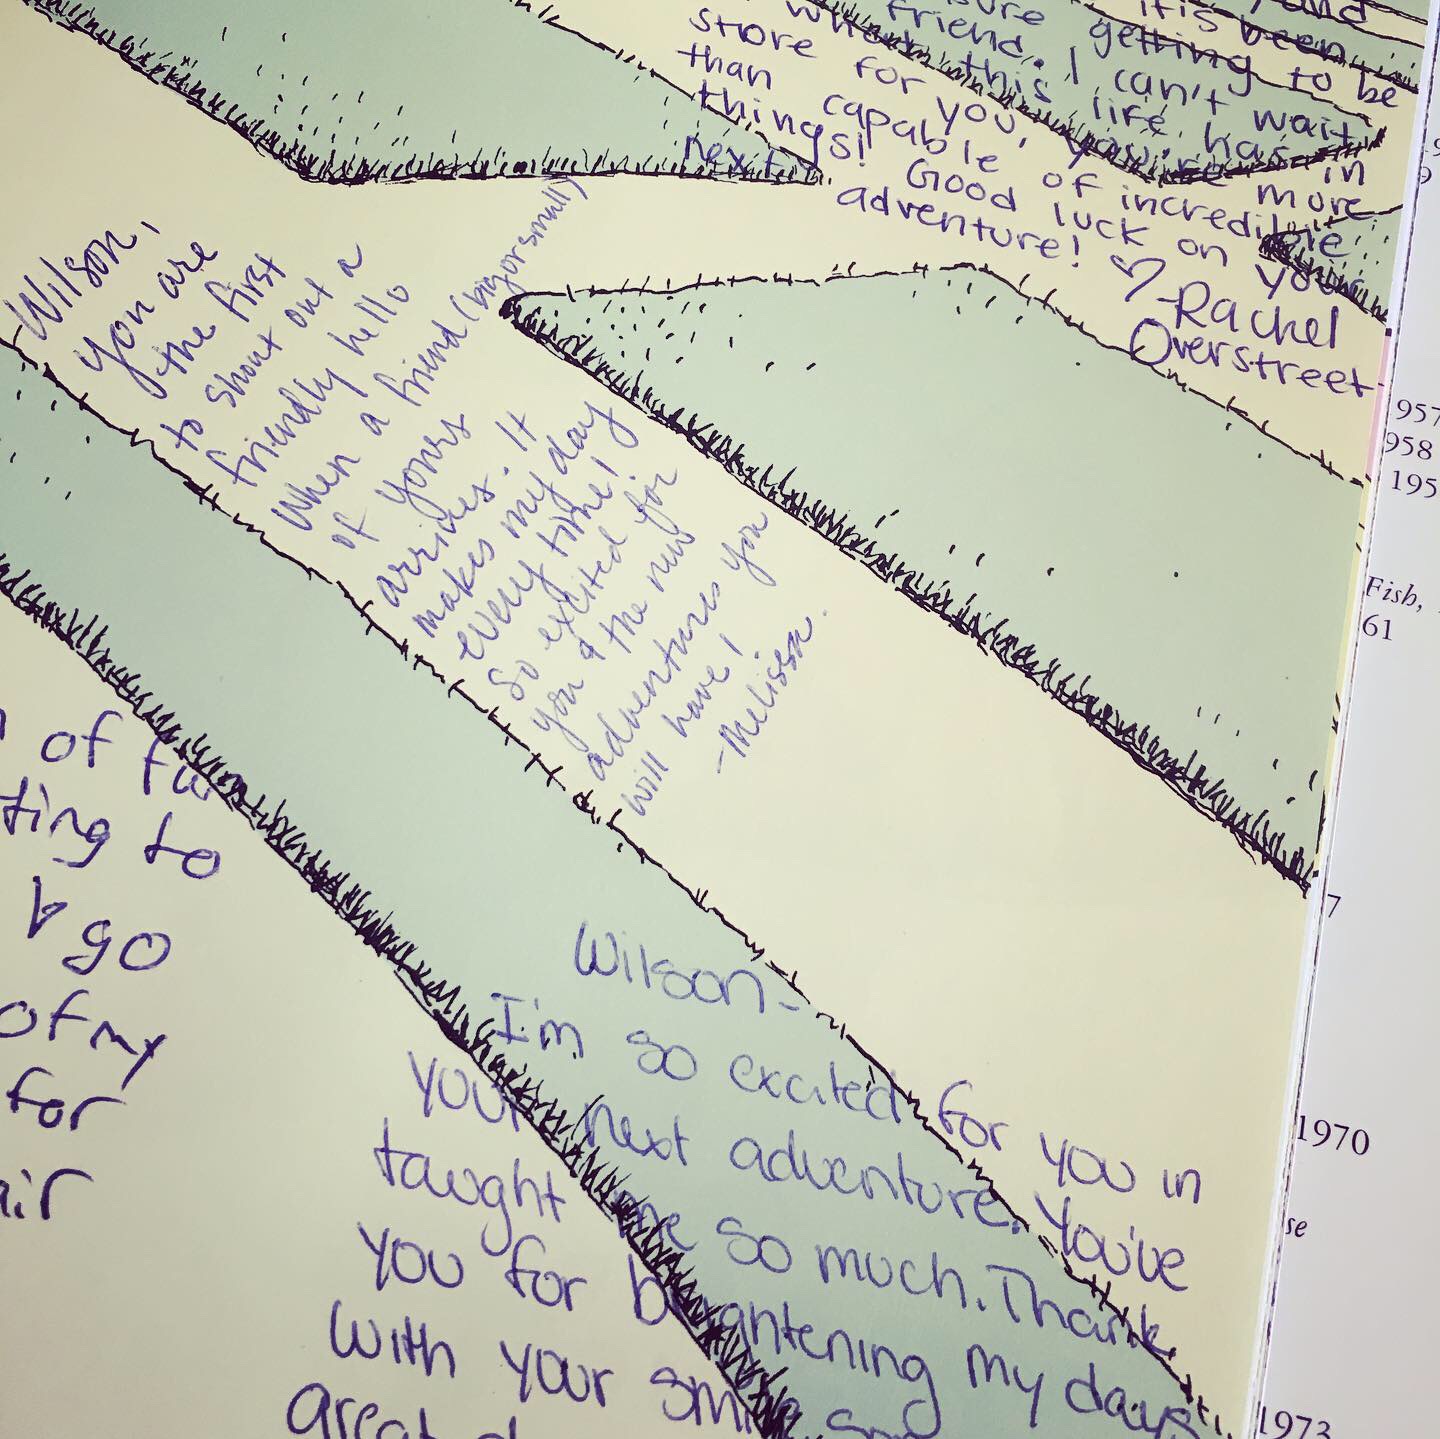 and
sure it is been
friend. getting to be
what this I can't wait
store for you, life has in
than capable you're more
things! of incredible
next Good luck on your
adventure!
♡ Rachel
Overstreet
Wilson,
you are
the first
to shout out a
friendly hello
when a friend (big or small)
of yours
arrives. It
makes my day
every time!
So excited for
you & the new
adventures you
will have!
-Melissa.
of fur
ting to
go
of my
for
air
Wilson-
I'm so excited for you in
your next adventure. You've
taught me so much. Thank
you for brightening my days
with your smile
great
957
958
195
Fish,
61
7
1970
se
1973